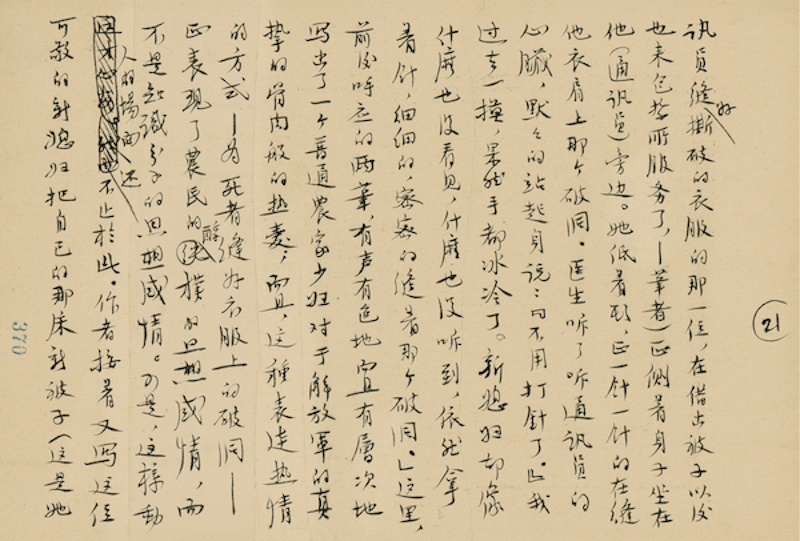 訊員縫好撕破的衣服的那一位,在借出被子以後
也来包紮所服务了,—筆者)正側着身子坐在
他(通訊員)旁边。她低着头,正一針一針的在縫
他衣肩上那个破洞。医生听了听通訊員的
心臟,默々的站起身说:「不用打針了。」我
过去一摸,果然手都冰冷了。新媳妇却像
什麽也没看見,什麽也没听到,依然拿
着針,細細的,密密的縫着那个破洞。」这里,
前後呼应的两筆,有声有色地而且有層次地
写出了一个普通農家少妇对于解放軍的真
挚的骨肉般的热爱;而且,这種表达热情
的方式—为死者縫好衣服上的破洞—
正表現了農民的醇樸的思想感情,而
不是知識分子的思想感情。可是,这样動
人的場面还不止於此。作者接着又写这位
可敬的新媳妇把自己的那床新被子(这是她
21
370